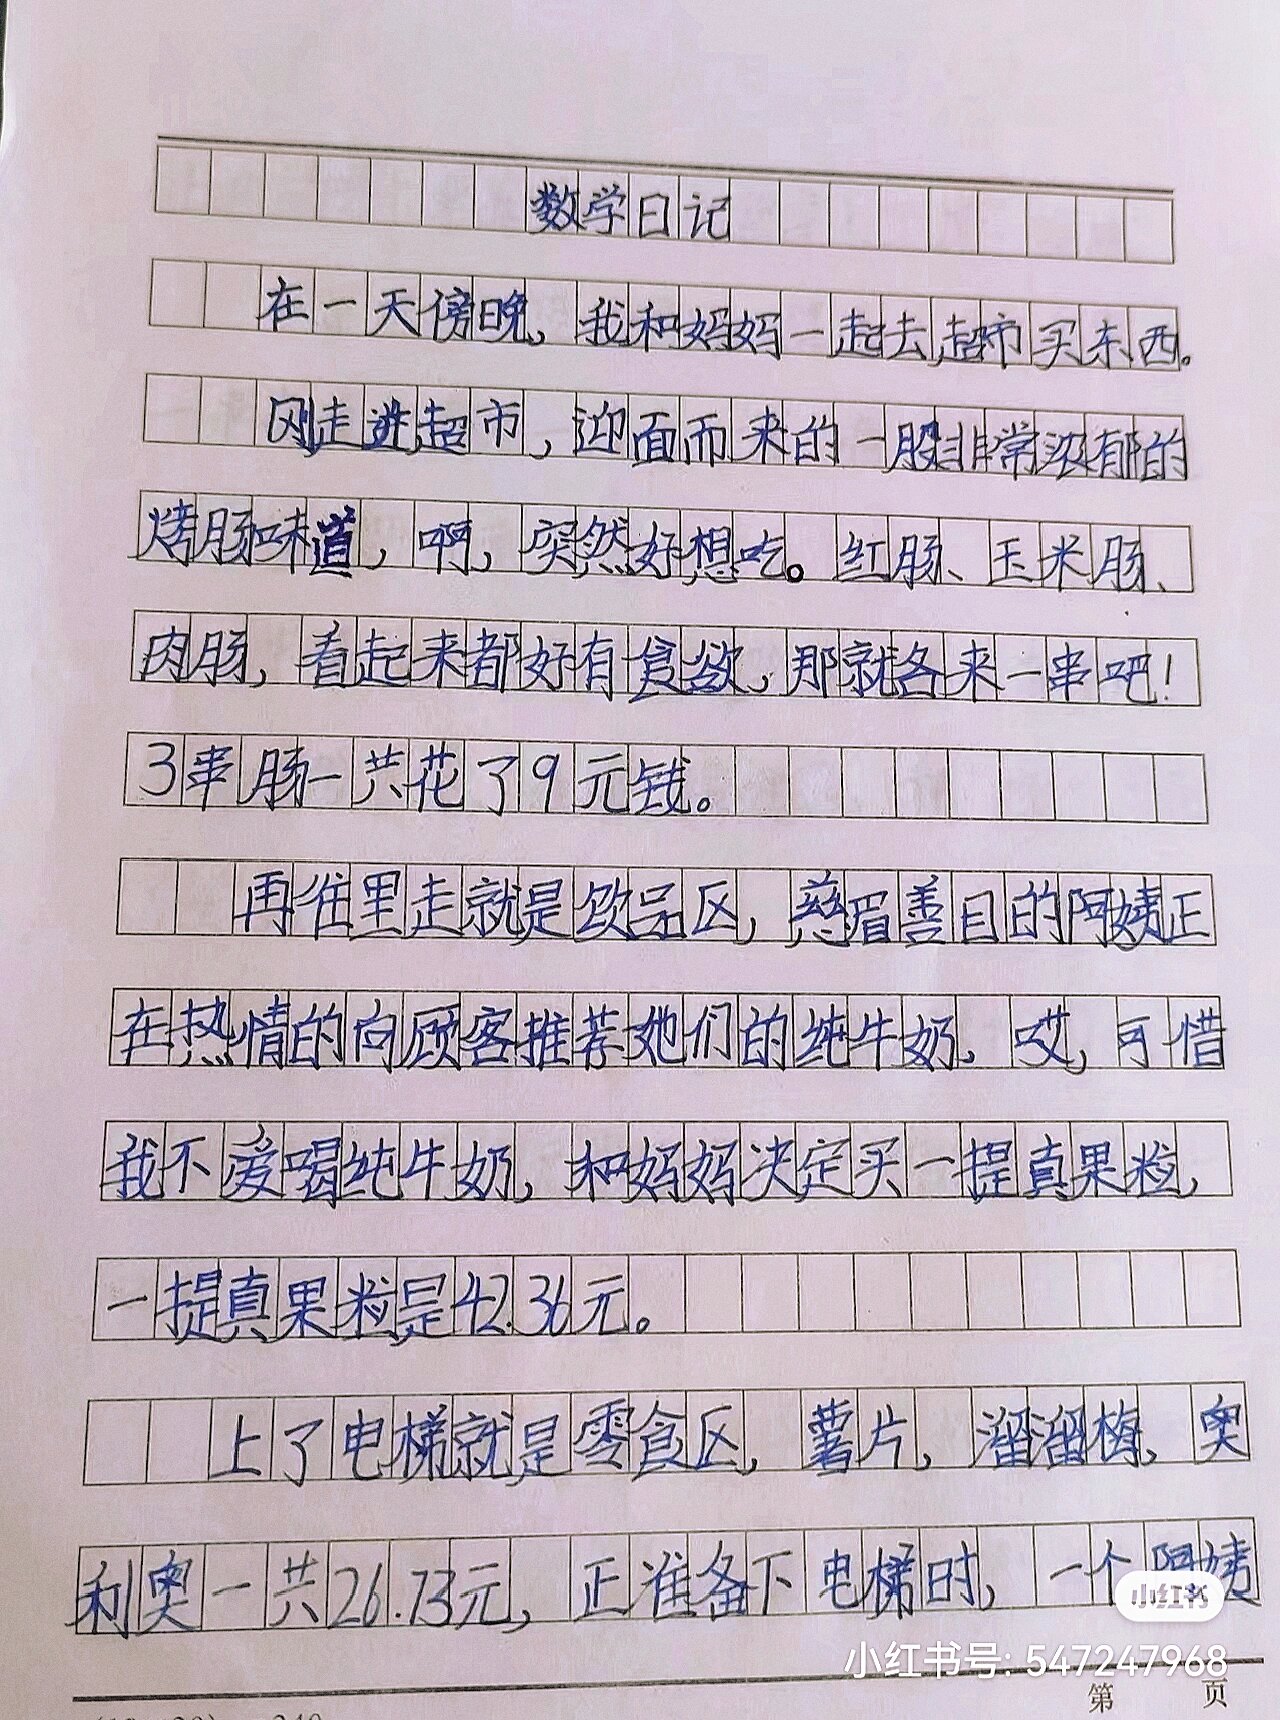 数学日记
在一天傍晚，我和妈妈一起去超市买东西。
刚走进超市，迎面而来的一股非常浓郁的
烤肠味道，啊，突然好想吃。红肠、玉米肠、
肉肠，看起来都好有食欲，那就各来一串吧！
3串肠一共花了9元钱。
再往里走就是饮品区，慈眉善目的阿姨正
在热情的向顾客推荐她们的纯牛奶。哎，可惜
我不爱喝纯牛奶，和妈妈决定买一提真果粒，
一提真果粒是42.36元。
上了电梯就是零食区，薯片，溜溜梅，奥
利奥一共26.73元，正准备下电梯时，一个阿姨
小红书
小红书号：547247968
第 页